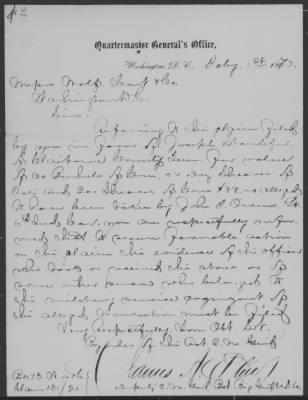 Quartermaster General's Office,
Washington, D. C. Feby. 1st 1870
Messrs Wolf, Hart & Co.
Washington D.C.
Sirs:
Referring to the claim filed
by you in favor of Joseph
of Claiborne County Tenn. for value
of 20 Bushels of Corn, Sheaves of
Oats and 200 Sheaves of alleged
to have been taken by John S. Owens, Lt
6th Ind. Cav. you are respectfully infor-
med that to secure favorable action
on the claim the evidence of the officer
who took or received the stores or of
some other person who belonged to
the military service cognizant of
the alleged transaction must be filed
Very respectfully Your Obt. Svt.
By order of the Qr. M. Genl.
James A. Ekin
Deputy Q. M. Genl. Bvt. Brig. Genl. U.S.A.